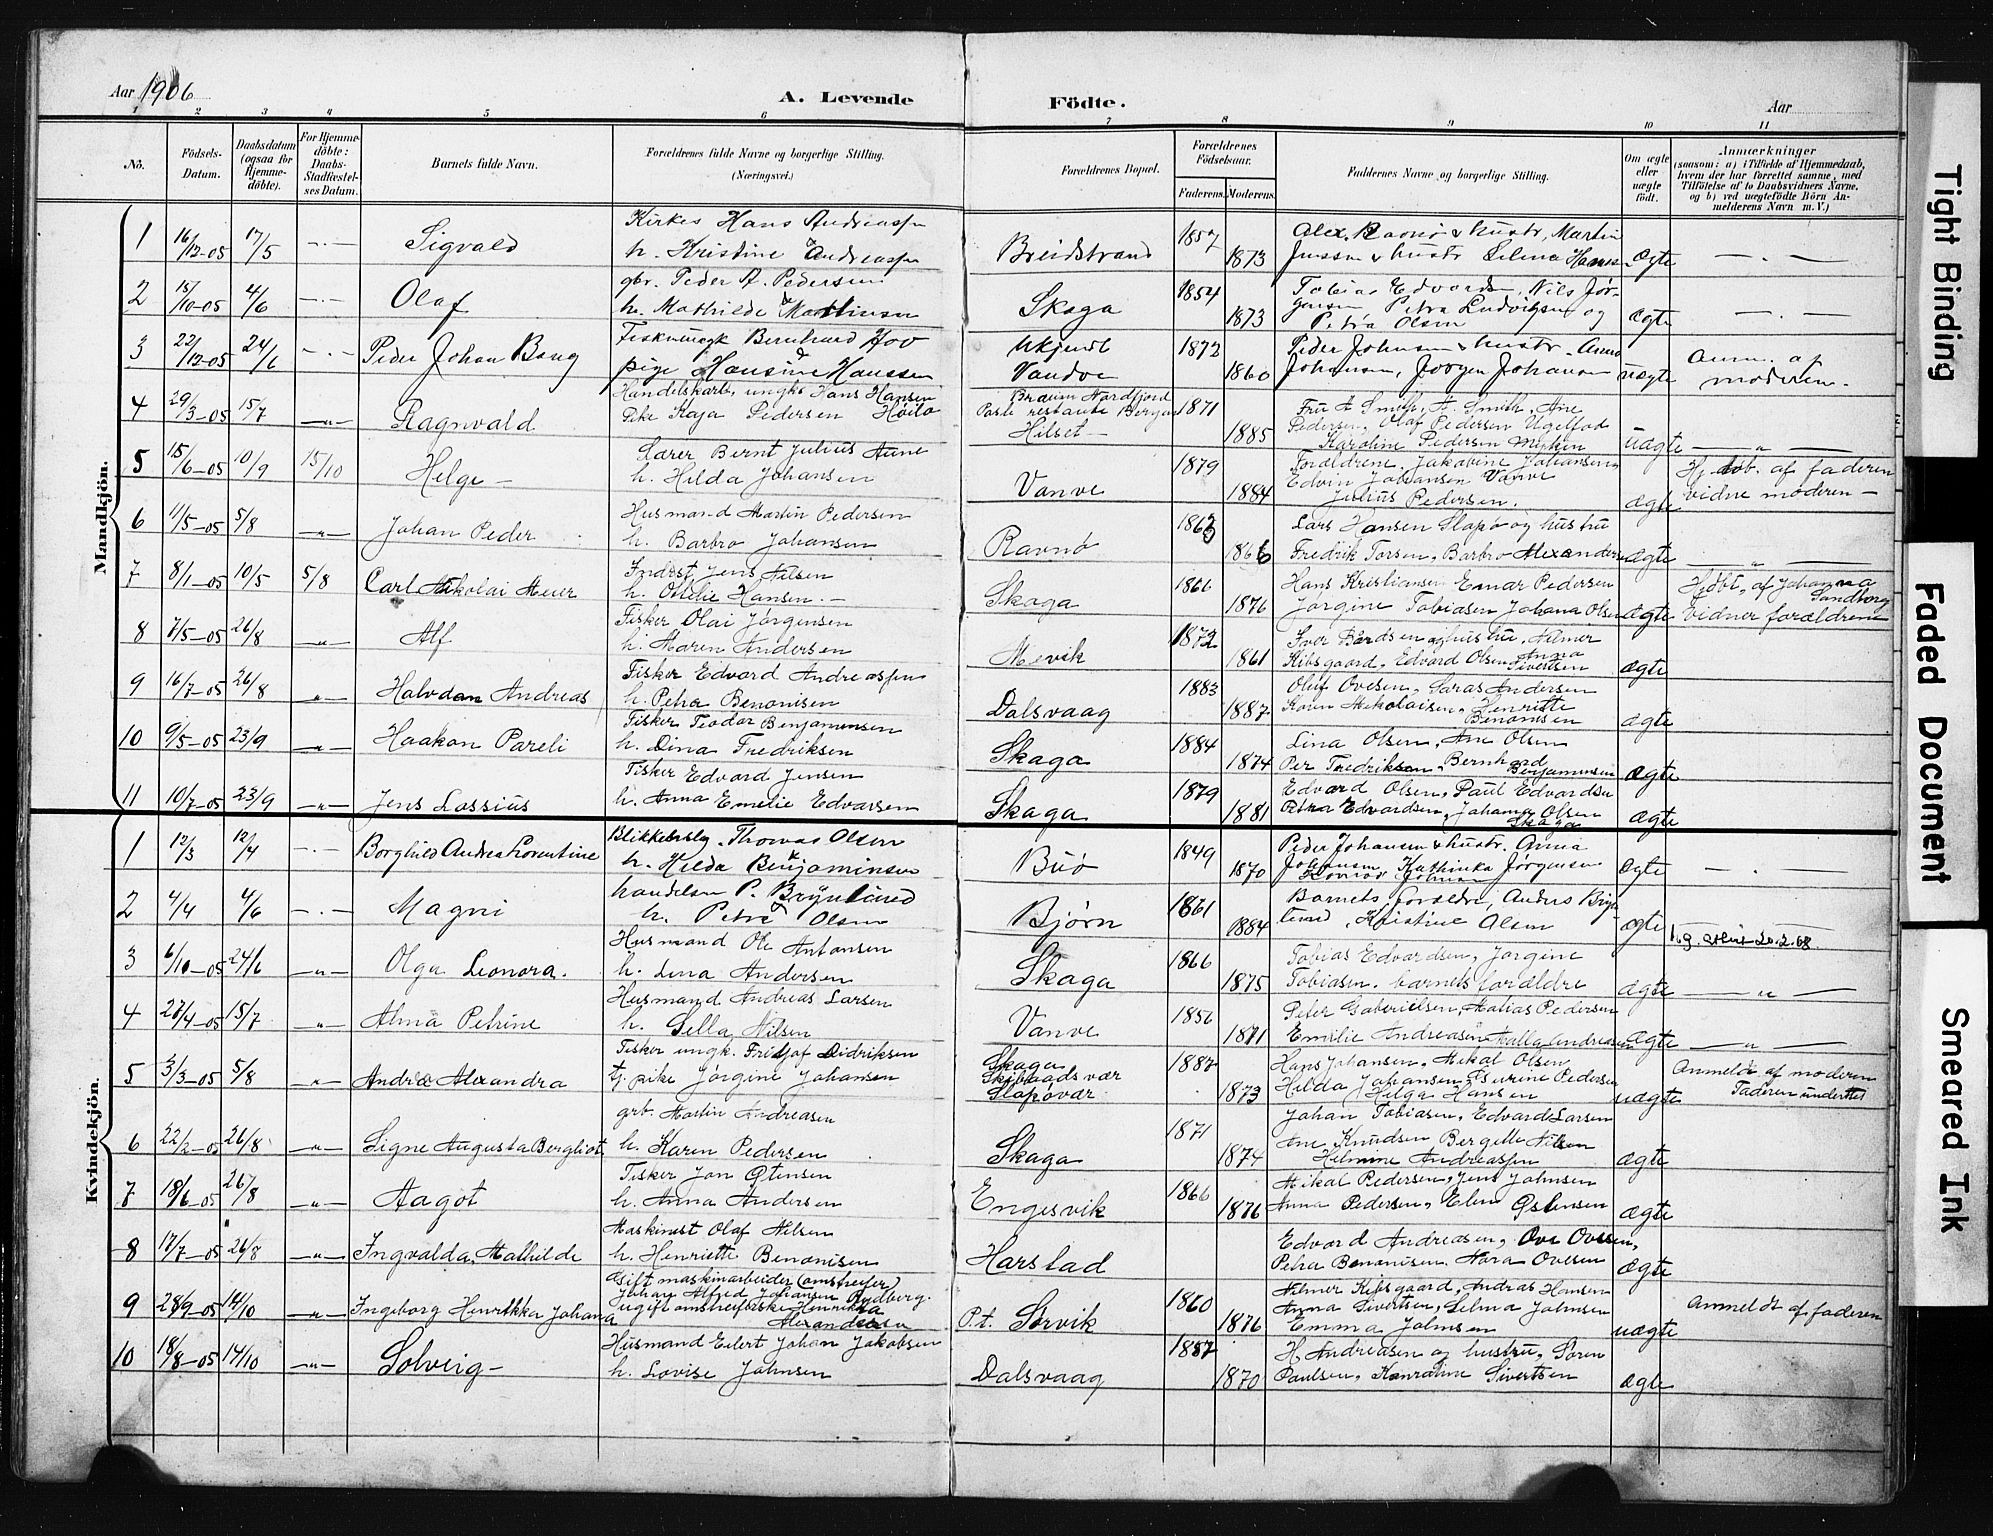 Aar 1906 A. Levende Födte. Aar
1 2 3 4 5 6 7 8 9 10 11
No. Födsels-Datum. Daabsdatum (ogsaa for Hjemmedöbte). For Hjemmedöbte: Daabs-Stadfæstelses Datum. Barnets fulde Navn. Forældrenes fulde Navne og borgerlige Stilling. (Næringsvei.) Forældrenes Bopæl. Forældrenes Födselsaar. Faderens. Moderens. Faddernes Navne og borgerlige Stilling. Om ægte eller uægte födt. Anmærkninger (saasom: a) i Tilfælde af Hjemmedaab, hvem der har forrettet samme, med Tilföielse af to Daabsvidners Navne. og b) ved uægtefödte Börn Anmelderens Navn m. V.)
Mandkjön.
1 16/12-05 17/5 -·- Sigvald Kirkes Hans Andreassen
h. Kristine Andreassen Breidstrand 1857 1873 Alex. Ravnø & hustr, Martin
Jenssen & hustr Selma Hansen ægte -·-
2 15/10-05 4/6 -·- Olaf gbr. Peder A. Pedersen
h. Mathilde Martinsen Skaga 1854 1873 Tobias Edvardsn, Nils Jør-
gensen Petra Ludvigsen og
Petra Olsen ægte -·-
3 22/12-05 24/6 -·- Peder Johan Bang Bernhard Hov
pige Hansine Hanssen Ukjendt
Vandve 1872 1860 Peder Johnsen & hustr. Anna
Johansen, Jörgen Johansen uægte anm. af
moderen.
4 29/3-05 15/7 -"- Ragnvald Handelskarl, ungk. Hans Hansen
Pike Kaja Pedersen Høilo Nordfjord
Poste restante Bergen
Hilset- 1871 1885 Fru A Smith, A. Smith, Ane
Pedersen, Olaf Pedersen
Karoline Pedersen Myken uægte -"-
5 15/6-05 10/9 15/10 Helge - Lærer Bernt Julius Aune
h. Hilda Johansen Vanve 1879 1884 Forældrene, Jakobine Johansen
Edvin Johansen Vanve
Julius Pedersen. ægte Hj. döb. af faderen
vidne moderen-
6 11/5-05 5/8 -"- Johan Peder Husmand Martin Pedersen
h. Barbro Johansen Ravnø 1863 1866 Lars Hansen Slapø og hustru
Fredrik Torsen, Barbro Alexandersen ægte -"-
7 8/1-05 10/5 5/8 Carl Nikolai Meier Indrst. Jens Nilsen
h. Othelie Hansen.- Skaga 1866 1876 Hans Kristiansen Einar Pedersen
Jørgine Tobiasen Johana Olsen ægte Hjdbt. af Johanna
Sandberg
Vidner forældrene
8 7/5-05 26/8 -"- Alf Fisker Olai Jörgensen
h. Maren Andersen Mevik 1872 1861 Iver Bårdsen og hustru, Hilmer
Kibsgaard, Edvard Olsen Anna
Sivertsen ægte
9 16/7-05 26/8 -"- Halvdan Andreas Fisker Edvard Andreassen
h. Petra Benonisen Dalsvaag 1883 1887 Oluf Ovesen, Saras Andersen
Karen Nikolaisen, Henriette
Benonisen ægte
10 9/5-05 23/9 -"- Haakon Pareli Fisker Teodor Benjaminsen
h. Dina Fredriksen Skaga 1884 1874 Lina Olsen, Ane Olsen
Per Fredriksen, Bernhard
Benjaminsen ægte
11 10/7-05 23/9 -"- Jens Lossius Fisker Edvard Jensen
h. Anna Emelie Edvarsen Skaga 1879 1881 Edvard Olsen, Paul Edvardsen
Petra Edvardsen, Johanna Olsen
Skaga ægte
Kvindekjön.
1 12/3 12/4 -·- Borghild Andrea Lorentine Blikkenslg. Thomas Olsen
h. Hilda Benjaminsen Buø 1849 1870 Peder Johansen & hustr. Anna
Johansen, Kathinka Jørgensen ægte -·-
2 4/4 4/6 -·- Magni handelsm P. Brynlund
h. Petra Olsen Bjørn 1861 1884 Barnets forældre, Anders Bryn-
lund, Kristine Olsen ægte
3 6/10-05 24/6 -"- Olga Leonora. Husmand Ole Antonsen
h. Lina Andersen Skaga 1866 1875 Tobias Edvardsen, Jørgine
Tobiasen. barnets forældre ægte -"-
4 27/4-05 15/7 -"- Alma Petrine Husmand Andreas Larsen
h. Sella Nilsen Vanve 1856 1871 Peter Gabrielsen, Matias Pedersen
Emilie Andreasen Malla Andreasen ægte -"-
5 3/3-05 5/8 -"- Andrea Alexandra Fisker ungk. Fridjof Didriksen
Tj. pike Jørgine Johansen Skaga
Skibbaadsvær
Slapøvær 1882 1873 Hans Johansen, Mikal Olsen
Hilda Johansen Isurine Pedersen
Helga Hansen uægte Anmeldt af moderen
Faderen underrettet
6 22/2-05 26/8 -"- Signe Augusta Bergliot grb. Martin Andreasen
h. Karen Pedersen Skaga 1871 1874 Johan Tobiasen, Edvard Larsen
Ane Knudsen Bergitte Nilsen
Helmine Andreassen ægte
7 18/6-05 26/8 -"- Aagot Fisker Jon Østensen
h. Anna Andersen Engesvik 1866 1876 Mikal Pedersen, Jens Johnsen
Anna Pedersen, Elen Østensen ægte
8 17/7-05 26/8 -"- Ingvalda, Mathilde Maskinest Olaf Nilsen
h. Henriette Benonisen Harstad Edvard Andreasen, Ove Ovesen,
Petra Benonisen, Nora Ovesen ægte
9 28/9-05 14/10 -"- Ingeborg Henrikka Johana Gift maskinarbeider (omstreifer)
Johan Alfred Johansen Rydberg.
ugift omstreiferske Henrikka
Alexandersen P.t. Sørvik 1860 1876 Hilmer Kibsgaard, Andras Hansen
Anna Sivertsen, Selma Johnsen
Emma Johnsen uægte Anmeldt af faderen
10 18/8-05 14/10 -"- Solveig- Husmand Eilert Johan Jakobsen
h. Lovise Johnsen Dalsvaag 1887 1870 H. Andreasen og hustru, Soren
Paulsen, Konradine Sivertsen ægte
Tight Binding
Faded Document
Smeared Ink